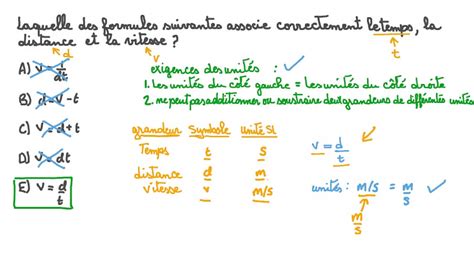 Laquelle des formules suivantes associe correctement le temps, la
distance et la vitesse ?
d
v
t
A) v = 1/dt
exigences des unités :
1. les unités du côté gauche = les unités du côté droite
B) d = v - t
2. ne peut pas additionner ou soustraire deux grandeurs de différentes unités
C) v = d + t
grandeur symbole unité SI
Temps t s
D) v = dt
distance d m
vitesse v m/s
E) v = d/t
v = d/t
unités : m/s = m/s
m/s